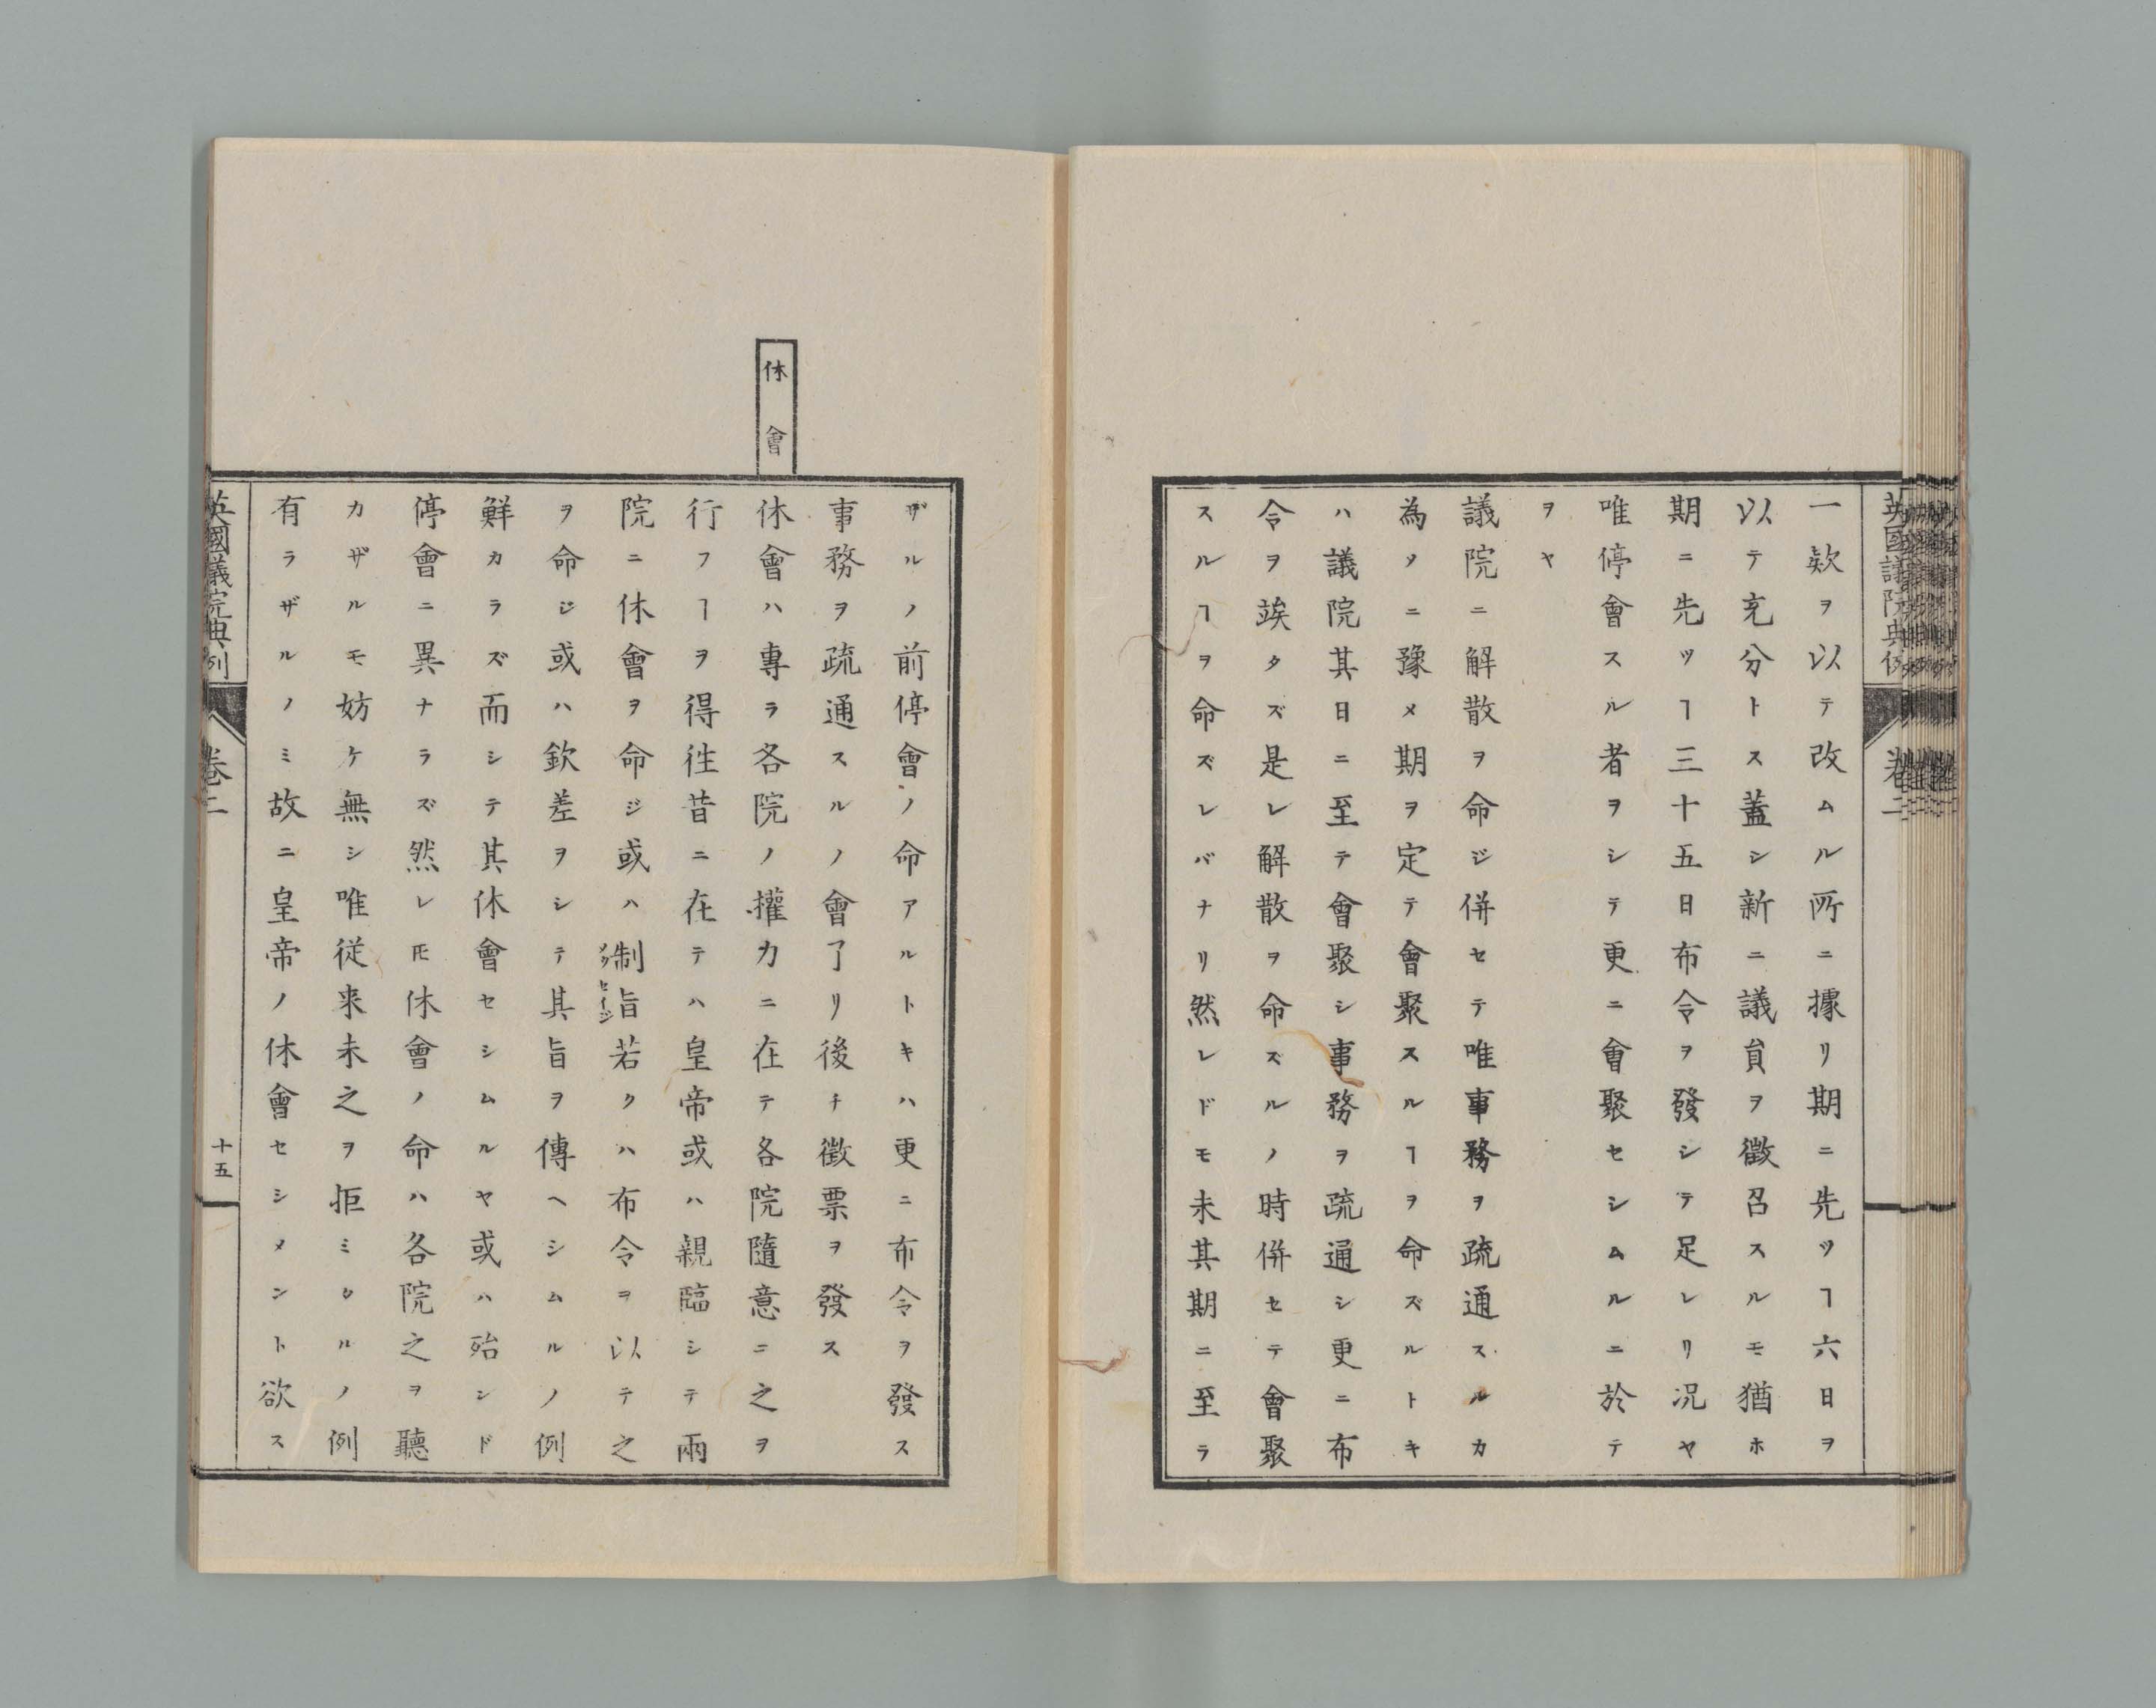 英國議院典例
卷二
一欵ヲ以テ改ムル所ニ據リ期ニ先ツヿ六日ヲ
以テ充分トス蓋シ新ニ議貟ヲ徴召スルモ猶ホ
期ニ先ツヿ三十五日布令ヲ發シテ足レリ况ヤ
唯停會スル者ヲシテ更ニ會聚セシムルニ於テ
ヲヤ
議院ニ解散ヲ命ジ併セテ唯事務ヲ疏通スルカ
為メニ豫メ期ヲ定テ會聚スルヿヲ命ズルトキ
ハ議院其日ニ至テ會聚シ事務ヲ疏通シ更ニ布
令ヲ竢タズ是レ解散ヲ命ズルノ時併セテ會聚
スルヿヲ命ズレバナリ然レドモ未其期ニ至ラ
ザルノ前停會ノ命アルトキハ更ニ布令ヲ發ス
事務ヲ疏通スルノ會了リ後チ徴票ヲ發ス
休會
休會ハ專ラ各院ノ權力ニ在テ各院隨意ニ之ヲ
行フヿヲ得徃昔ニ在テハ皇帝或ハ親臨シテ兩
院ニ休會ヲ命ジ或ハ制旨若クハ布令ヲ以テ之
ヲ命ジ或ハ欽差ヲシテ其旨ヲ傳ヘシムルノ例
鮮カラズ而シテ其休會セシムルヤ或ハ殆ンド
停會ニ異ナラズ然レ𪜈休會ノ命ハ各院之ヲ聽
カザルモ妨ケ無シ唯従来未之ヲ拒ミシルノ例
有ラザルノミ故ニ皇帝ノ休會セシメント欲ス
英國議院典例
卷二
十五